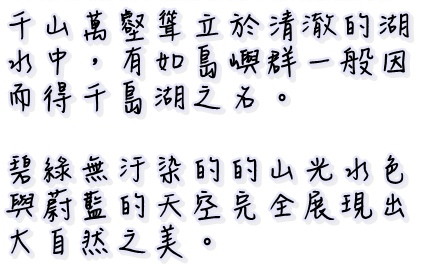 千山萬壑聳立於清澈的湖
水中，有如島嶼群一般因
而得千島湖之名。
碧綠無汙染的的山光水色
與蔚藍的天空完全展現出
大自然之美。